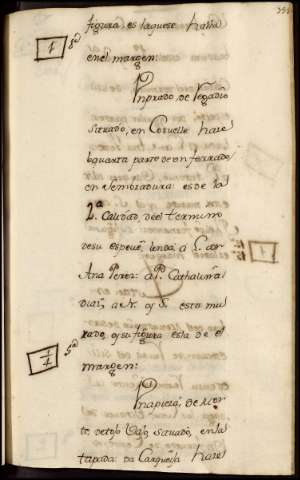 figura, es laquese halla
en el margen:
Un prado, de Regadío
Serrado, en Coruelle hase
la quarta parte de un ferrado
en Sembradura: es de la
2.ª Calidad, deel termino
de su especie, linda, a L. con
Ana Perez: a P. Cathalina
Diaz, a N. y S. esta mu
rado, y su figura esta de el
margen:
Una pieza, de Mon
te, de tojo Vajo, Serrado, en la
tapada da Carqueija hase
1/4